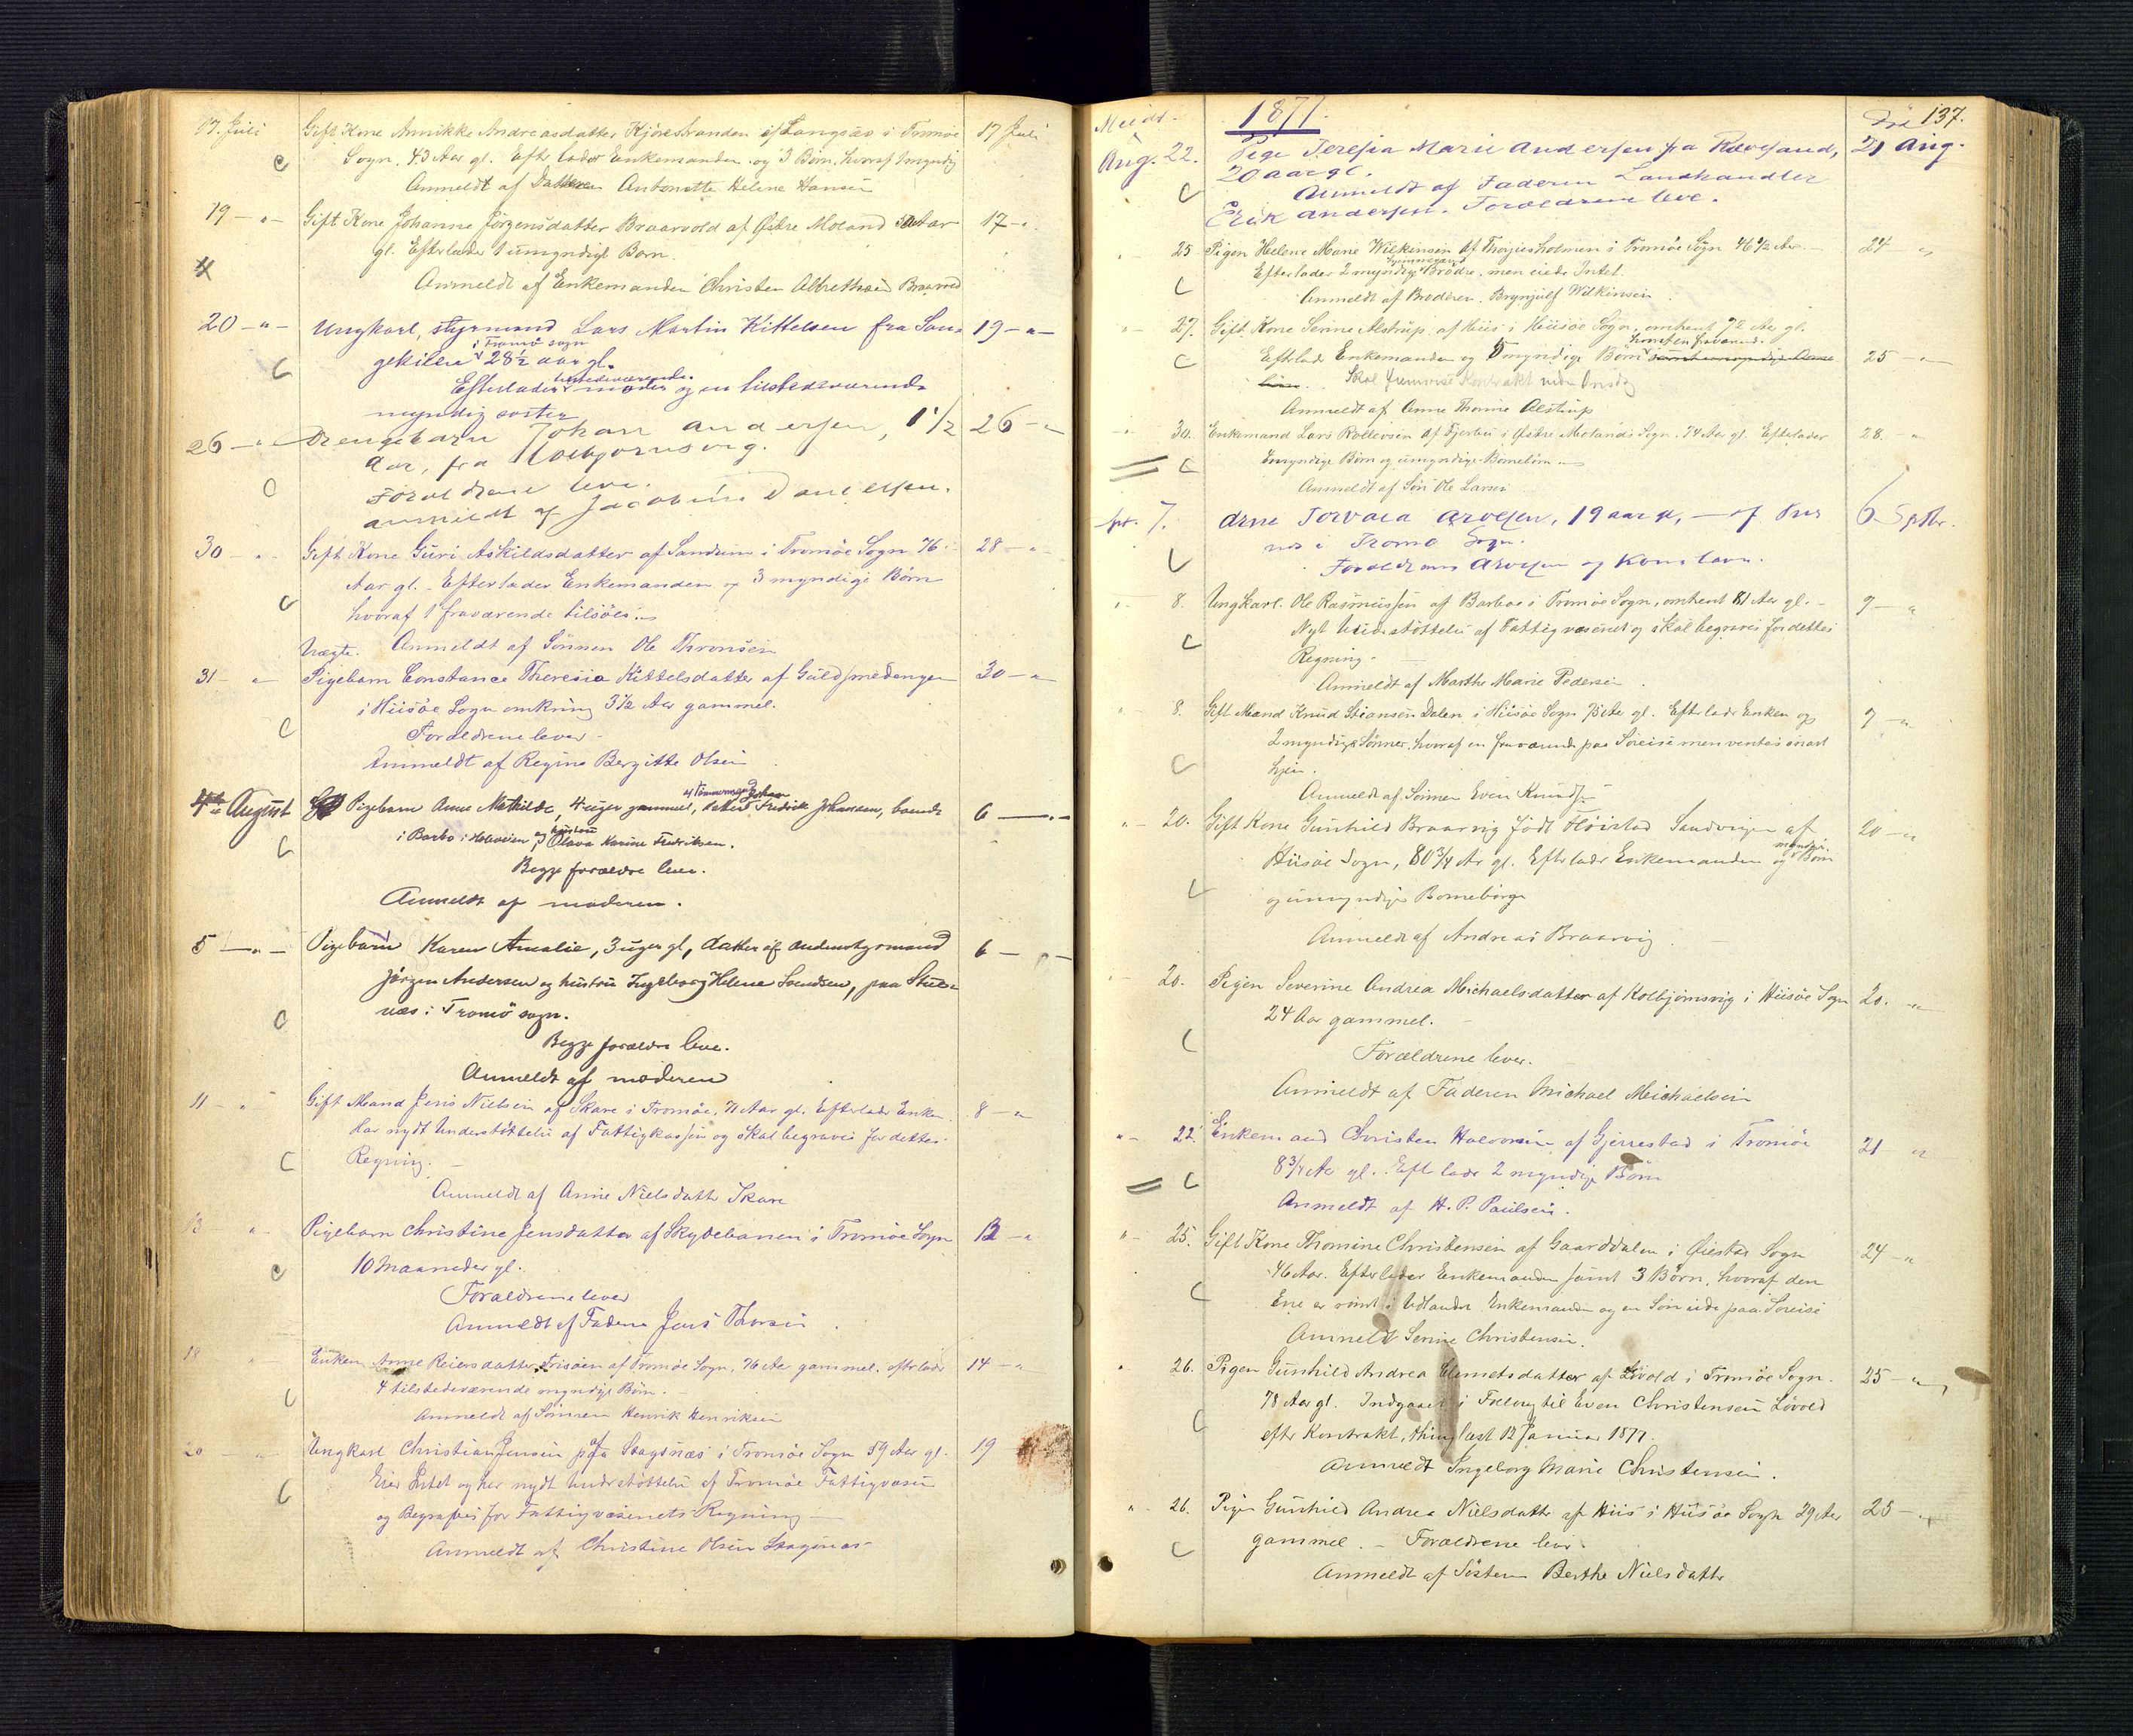 17. Juli Gift Kone Annikke Andreasdatter Kjørestranden af Langsæv i Tromøe 17 Juli
Sogn. 43 Aar gl. Efterlader Enkemanden og 3 Børn, hvoraf 1 myndig
Anmeldt af Datteren Antonette Helene Hansen
19 - " - Gift Kone Johanne Jörgensdatter Braarvold af Østre Moland Aar 17 - "
gl. Efterlader 1 umyndigt Barn.
Anmeldt af Enkemanden Christen Albrethsen Braarvold
20 - " - Ungkarl, styrmand Lars Martin Kittelsen fra Son- 19 - " -
i Tromö sogn
gekilen 28½ aar gl.
tilstedeværende
Efterlader moder og en tilstedeværende
myndig søster
26 - " - Drengebarn Johan Andersen, 1½ 26 - "
Aar, fra Kolbjornsvig.
Foroldrene leve.
anmeldt af Jacobine Danielsen.
30 - " - Gift Kone Guri Askildsdatter af Sandum i Tromöe Sogn 76 28 - "
Aar gl. Efterlader Enkemanden og 3 myndige Børn
hvoraf 1 fraværende tilsöes
Nægte. Anmeldt af Sönnen Ole Thronsen
31 - " Pigebarn Constance Theresia Kittelsdatter af Guldsmedengen 30 - "
i Hiisöe Sogn omkring 3½ Aar gammel.
Foroldrene lever -
Anmeldt af Regine Bergitte Olsen
4de August Pigebarn Anna Mathilde, 4 uger gammel, datter Fredrik Johansen, boende 6 - " -
af Tömmermand Johan
i Barbo i Holeveien og hustru Olava Karine Fredriksen.
Begge forældre leve.
Anmeldt af moderen.
5 - " - Pigebarn Karen Amalie, 3 uger gl, datter af andenstyrmand 6 - " -
Jörgen Andersen og hustru Ingeborg Helene Svendsen, paa Stue-
næs i Tromö sogn.
Begge forældre leve.
Anmeldt af moderen
11 - " Gift Mand Jens Nielsen af Skare i Tromöe, 71 Aar gl. Efterlader Enke 8 - "
Har nydt Understöttelse af Fattigkassen og skal begraves for dettes
Regning.
Anmeldt af Anne Nielsdatter Skare
13 " Pigebarn Christine Jensdatter af Skydebanen i Tromöe Sogn 12 - "
10 Maaneder gl.
Foraldrene lever
Anmeldt af Faderen Jens Thorsen
18 " Enken Anne Reiersdatter Frisöen af Tromöe Sogn, 76 Aar gammel. efterlader 14 - "
4 tilstedeværende myndige Børn.
Anmeldt af Sönnen Henrik Henriksen
20 " Ungkarl Christian Jensen af Skagsnæs i Tromöe Sogn 59 Aar gl. 19
Eier Intet og har nydt Understöttelse af Tromöe Fattigvæsen
og Begraves for Fattigvæsenets Regning
Anmeldt af Christine Olsen Skagsnæs
137.
1877.
Aug. 22. Pige Teresia Marie Andersen fra Revesand, 21 Aug.
20 aar gl.
Anmeldt af Faderen Landhandler
Erik Andersen. Foroldrene leve.
" 25 Pigen Helene Marie Wilkensen af Thorjusholmen i Tromöe Sogn 46½ Aar. 24 "
Efterlader 2 myndige Brödre, men eiede Intet.
Anmeldt af Broderen Brynjulf Wilkensen
" 27. Gift Kone Serine Alstrup af Hiis i Hiisöe Sogn, omtrent 72 Aar gl.
hvoraf en fraværende
Efterlader Enkemanden og 5 myndige Børn 25 - "
Skal fremvise Kontrakt
Anmeldt af Anne Thomine Alstrup
" 30. Enkemand Lars Rollevsen af Fjerbu i Østre Molands Sogn. 74 Aar gl. Efterlader 28. "
myndige Børn og umyndige Børnebörn
Anmeldt af Sön Ole Larsen
Spt. 7. Arne Torvald Arvesen, 19 aar gl, - af 6 Septbr.
i Tromö Sogn.
Foroldrene Arvesen og Kone leve.
" 8. Ungkarl Ole Rasmussen af Barboe i Tromöe Sogn, omtrent 81 Aar gl. 7 - "
Nydt Understöttelse af Fattigvæsenet og skal begraves for dettes
Regning.
Anmeldt af Marthe Marie Pedersen
" 8. Gift Mand Knud Stiansen Dalen i Hiisöe Sogn 75 Aar gl. Efterlader Enken og 7 - "
2 myndige Sönner, hvoraf en fraværende paa Söreise men ventes snart
hjem.
Anmeldt af Sönnen Even Knudsen
" 20. Gift Kone Gunhild Braarvig födt Höistad Sandvigen af 20 - "
myndige
Hiisöe Sogn, 80¾ Ar gl. Efterlader Enkemanden og Børn
og umyndige Børnebörn
Anmeldt af Andreas Braarvig
20. Pigen Severine Andrea Michaelsdatter af Kolbjörnsvig i Hiisöe Sogn 20. "
24 Aar gammel.
Forældrene lever.
Anmeldt af Faderen Michael Michaelsen
" 22. Enkemand Christen Halvorsen af Gjerrestad i Tromöe 21 "
83¼ Aar gl. Efterlader 2 myndige Børn
Anmeldt af H. P. Paulsen.
" 25. Gift Kone Thomine Christensen af Gaarddalen i Øiestad Sogn 24 - "
46 Aar. Efterlader Enkemanden samt 3 Børn, hvoraf den
Ene er römt i Udlandet Enkemanden og en Sön ude paa Söreise
Anmeldt Serine Christensen.
" 26. Pigen Gunhild Andrea Clemetsdatter af Lövold i Tromöe Sogn. 25 - "
78 Aar gl. Indgaaet i Fællesbo til Even Christensen Lövold
efter Kontrakt, thinglæst 12 Januar 1877.
Anmeldt Ingeborg Marie Christensen.
" 26. Pigen Gunhild Andrea Nielsdatter af Hiis i Hiisöe Sogn 29 Aar 25 - "
gammel. - Foraldrene lever
Anmeldt af Söster Berthe Nielsdatter